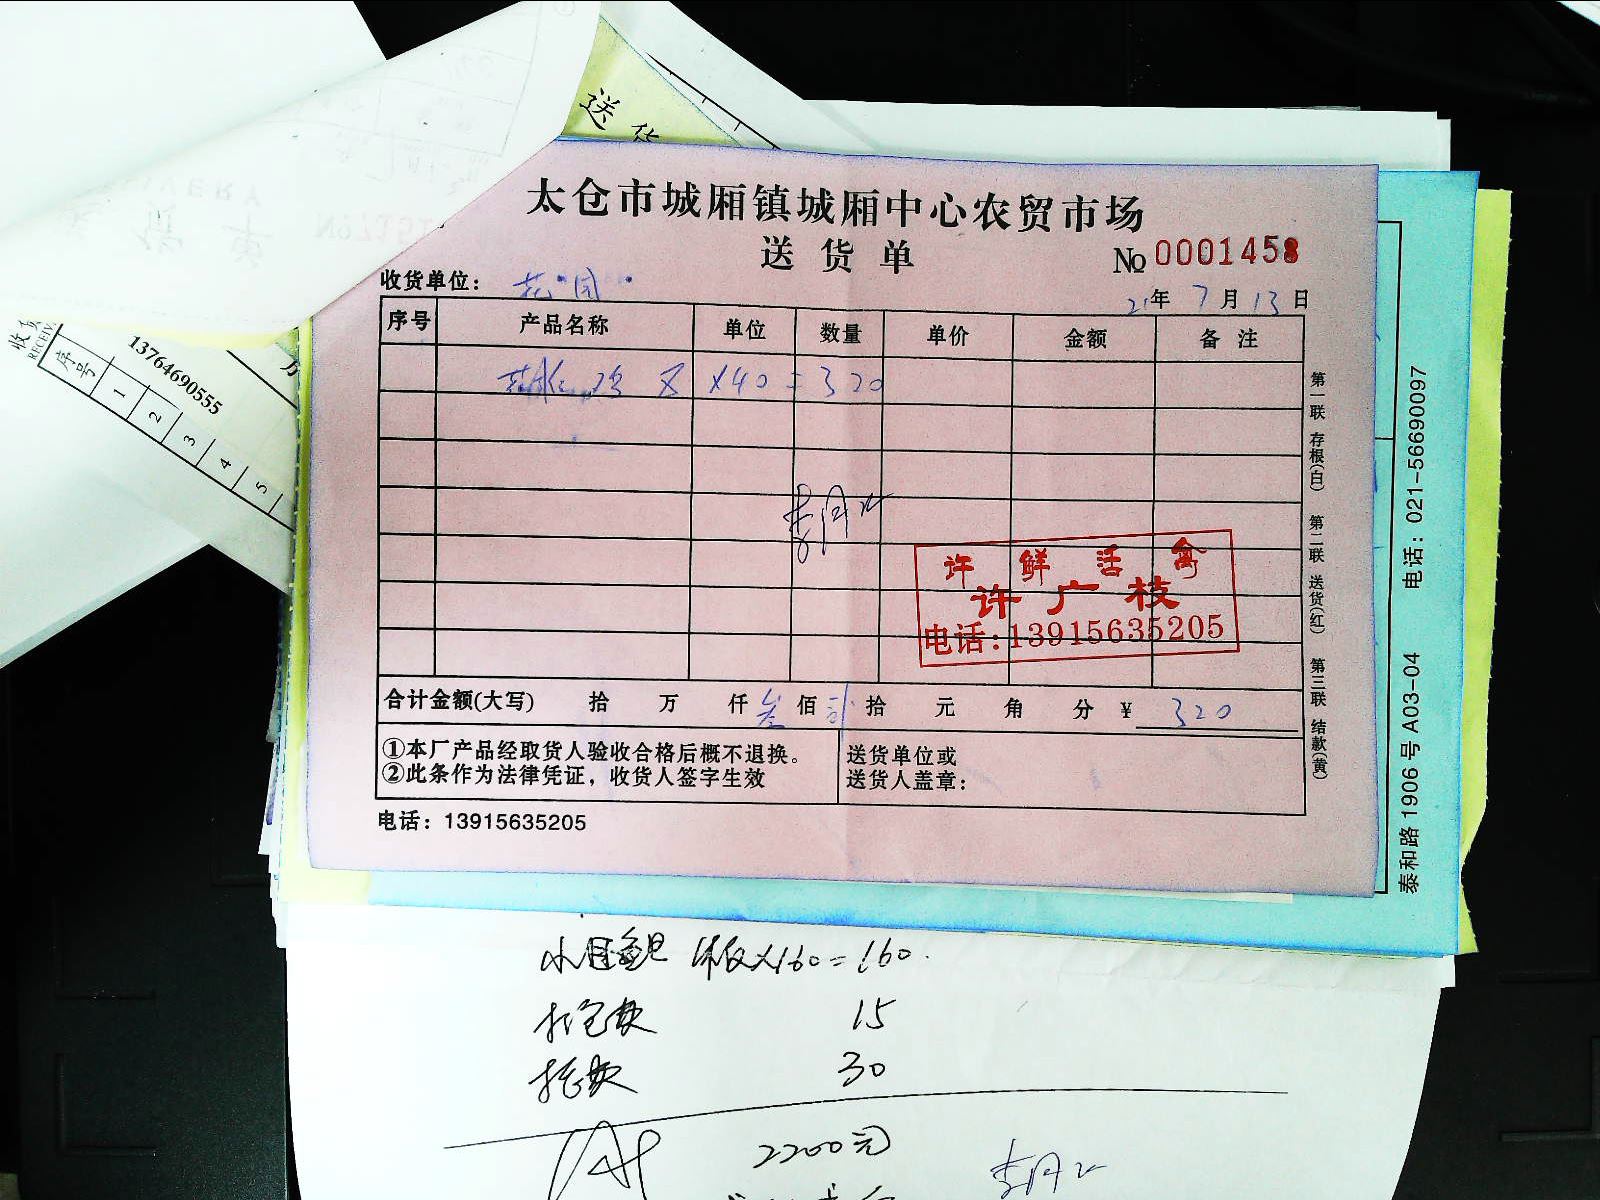 送货
太仓市城厢镇城厢中心农贸市场
送货单
№ 0001458
收货单位：花园
21年 7月 13日
序号 产品名称 单位 数量 单价 金额 备注
×40=320
许鲜活禽
许广枝
电话:13915635205
合计金额(大写) 拾 万 仟 叁佰 贰拾 元 角 分 ¥ 320
①本厂产品经取货人验收合格后概不退换。
②此条作为法律凭证，收货人签字生效
送货单位或
送货人盖章：
电话：13915635205
第一联 存根(白) 第二联 送货(红) 第三联 结款(黄)
泰和路1906号A03-04 电话：021-56690097
RECEIV
13764690555
序号 1 2 3 4 5
×160=160.
打包费 15
托费 30
2200元